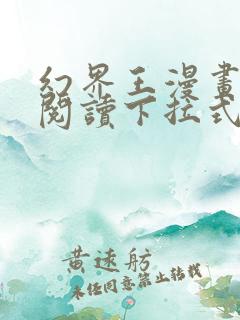 幻界王漫畫
閱讀下拉式
黄遠舫
未经同意禁止转载